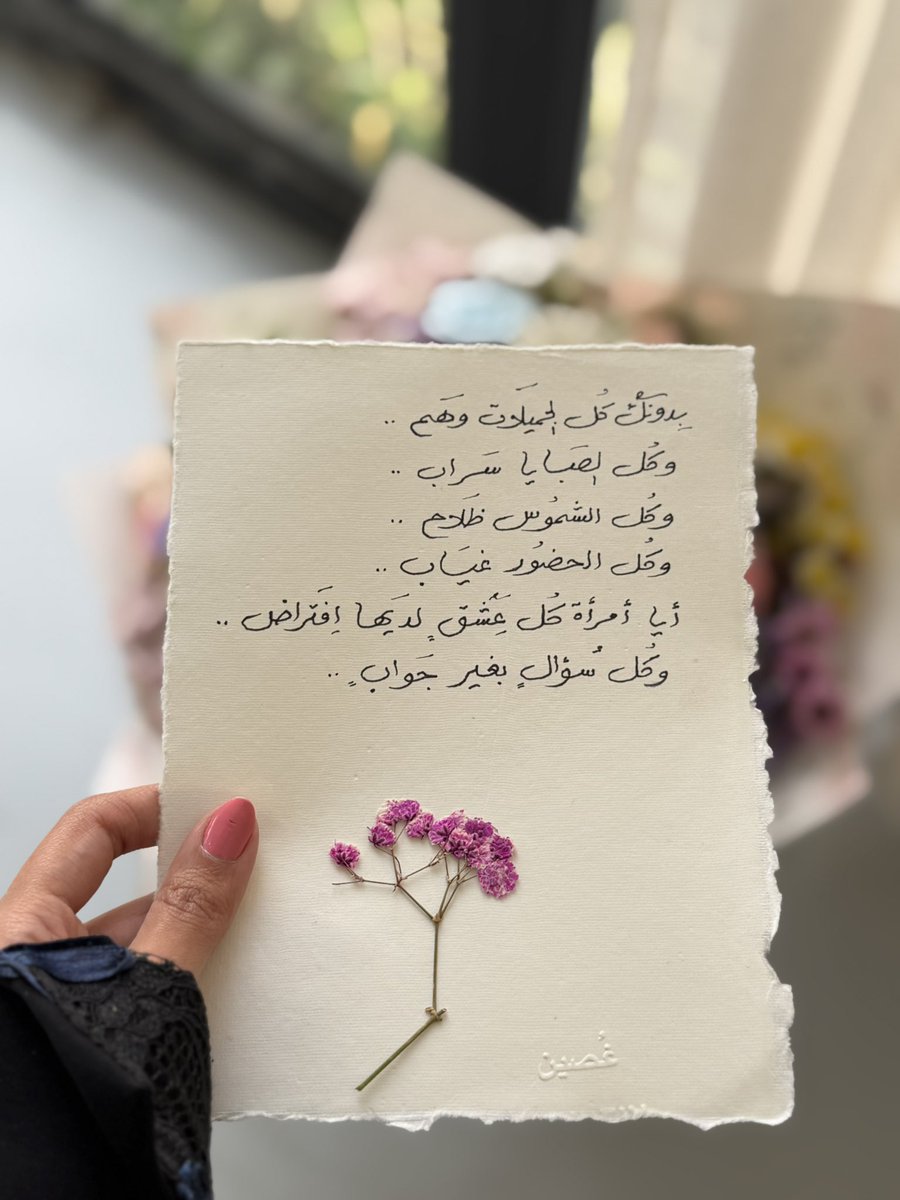 بِدونَكْ كُل الجميلَات وَهَم ..
وكُل الصَبايا سَراب ..
وكُل الشمُوس ظَلام ..
وكُل الحضُور غيَاب ..
أيا أمرأة كُل عِشْقٍ لديَها اِفَتراض ..
وكُل سُؤالٍ بغير جَوابٍ ..
غُصين